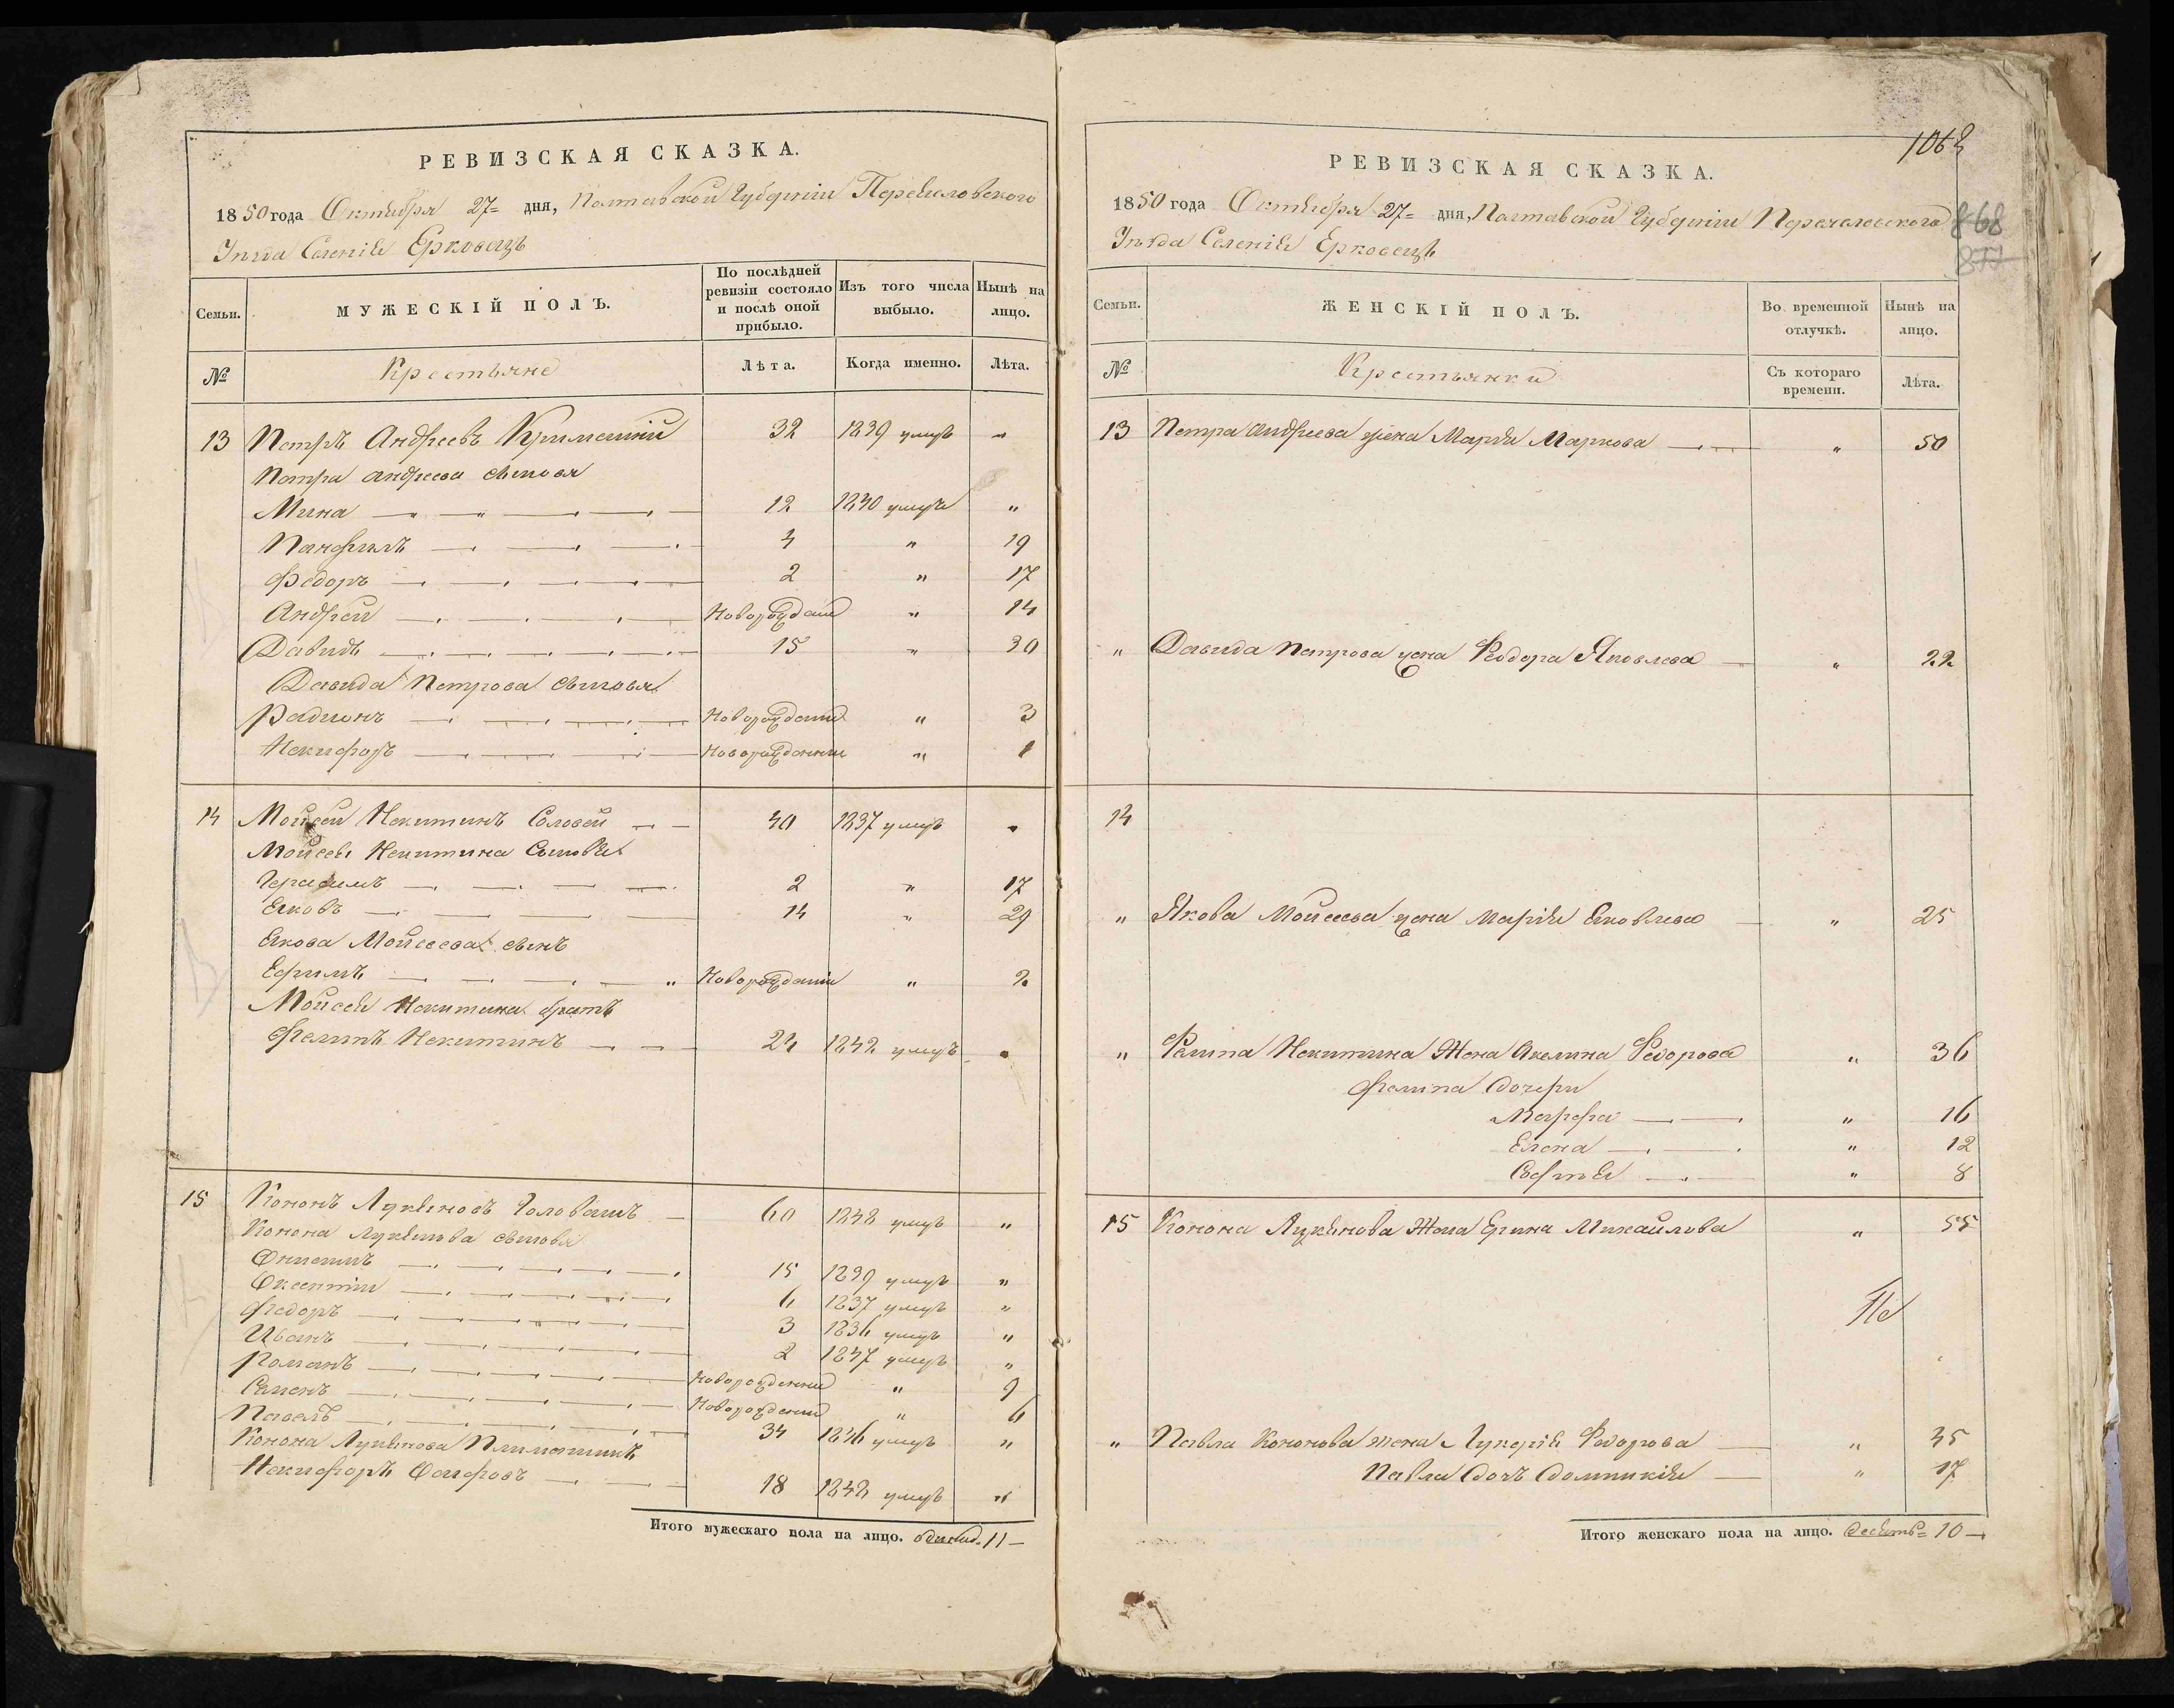 РЕВИЗСКАЯ СКАЗКА.
1850 года Октября 27 = дня, Полтавской Губерніи Переяловского
Уезда Селенія Ерковецъ
Семьи.
МУЖЕСКІЙ ПОЛЪ.
По послѣдней ревизіи состояло и послѣ оной прибыло.
Изъ того числа выбыло.
Нынѣ на лицо.
№
Крестьяне
Лѣта.
Когда именно.
Лѣта.
13 Петръ Андреевъ Кримскій 32 1839 умеръ "
Петра Андреева сыновья
Мина 12 1840 умеръ "
Панфилъ 4 " 19
Федоръ 2 " 17
Андрей Новорожденый " 14
Давидъ 15 " 30
Давида Петрова сыновья
Радионъ Новорожденый " 3
Некифоръ Новорожденный " 1
14 Мойсей Некитинъ Соловей 40 1837 умеръ "
Мойсея Некитина Сыновья
Герасимъ 2 " 17
Яковъ 14 " 29
Якова Мойсеева сынъ
Ефимъ " Новорожденый " 2
Мойсея Некитина братъ
Филипъ Некитинъ 24 1842 умеръ "
15 Кононъ Лукьяновъ Головашъ 60 1848 умеръ "
Конона Лукьянова сыновья
Онисимъ 15 1839 умеръ "
Оксентий 6 1837 умеръ "
Федоръ 3 1836 умеръ "
Иванъ 2 1847 умеръ "
Романъ Новорожденный " 9
Семенъ Новорожденый " 6
Павелъ 34 1846 умеръ "
Конона Лукьянова Племянникъ
Некифоръ Осифовъ 18 1848 умеръ "
Итого мужескаго пола на лицо. 11 —
1068
РЕВИЗСКАЯ СКАЗКА.
868
877
1850 года Октября 27 = дня, Полтавской Губерніи
Уезда Селенія Ерковецъ
Семьи.
ЖЕНСКІЙ ПОЛЪ.
Во временной отлучкѣ.
Нынѣ на лицо.
№
Крестьянки
Съ котораго времени.
Лѣта.
13 Петра Андреева жена Марія Маркова " 50
" Давида Петрова жена Феодора Яковлева " 22
14
" Якова Мойсеева жена Марія Яковлева " 25
" Филипа Некитина Жена Акелина Федорова " 36
Филипа Дочери
Марфа " 16
Елена " 12
Софія " 8
15 Конона Лукьянова Жена Ерина Михайлова " 55
" Павла Кононова жена Лукерія Федорова " 35
Павла Дочь Домникія " 17
Итого женскаго пола на лицо. Десять = 10 —